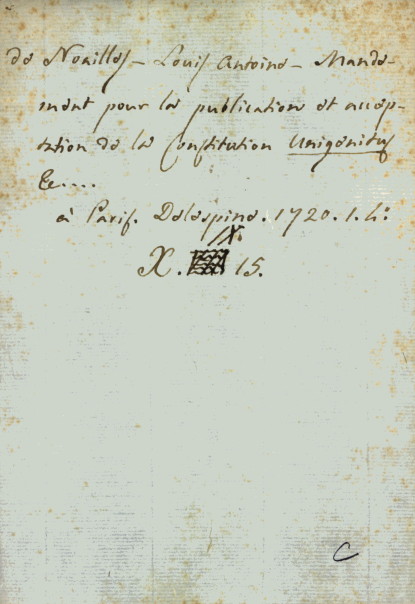 de Noailles - Louis Antoine - Mande-
ment pour la publication et accep-
tation de la Constitution Unigenitus
&c....
à Paris. Delespine. 1720. 1. 4:
IX.
X. 15.
C